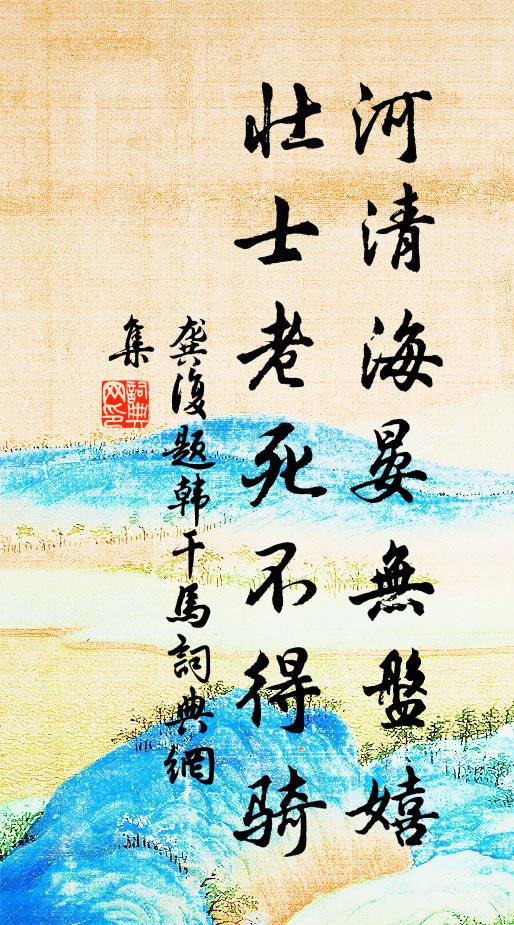 河清海晏無盤嬉
壯士老死不得騎
龚復题韩干馬詞典網
集
詞典网印